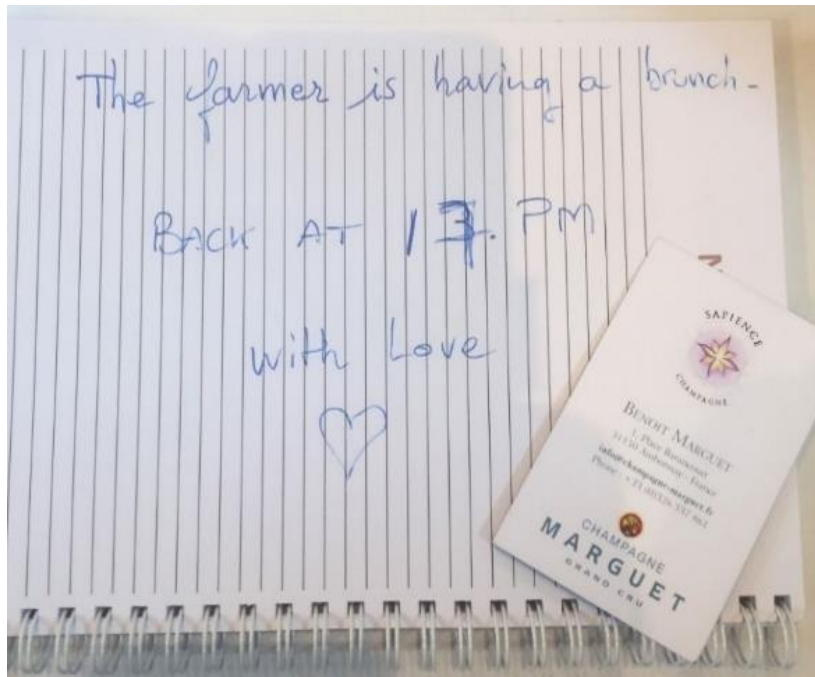 The farmer is having a brunch-
BACK AT 13. PM
With Love
SAPIENCE
CHAMPAGNE
BENOIT MARGUET
1, Place Barancourt
51150 Ambonnay - France
info@champagne-marguet.fr
Phone : +33
CHAMPAGNE
MARGUET
GRAND CRU